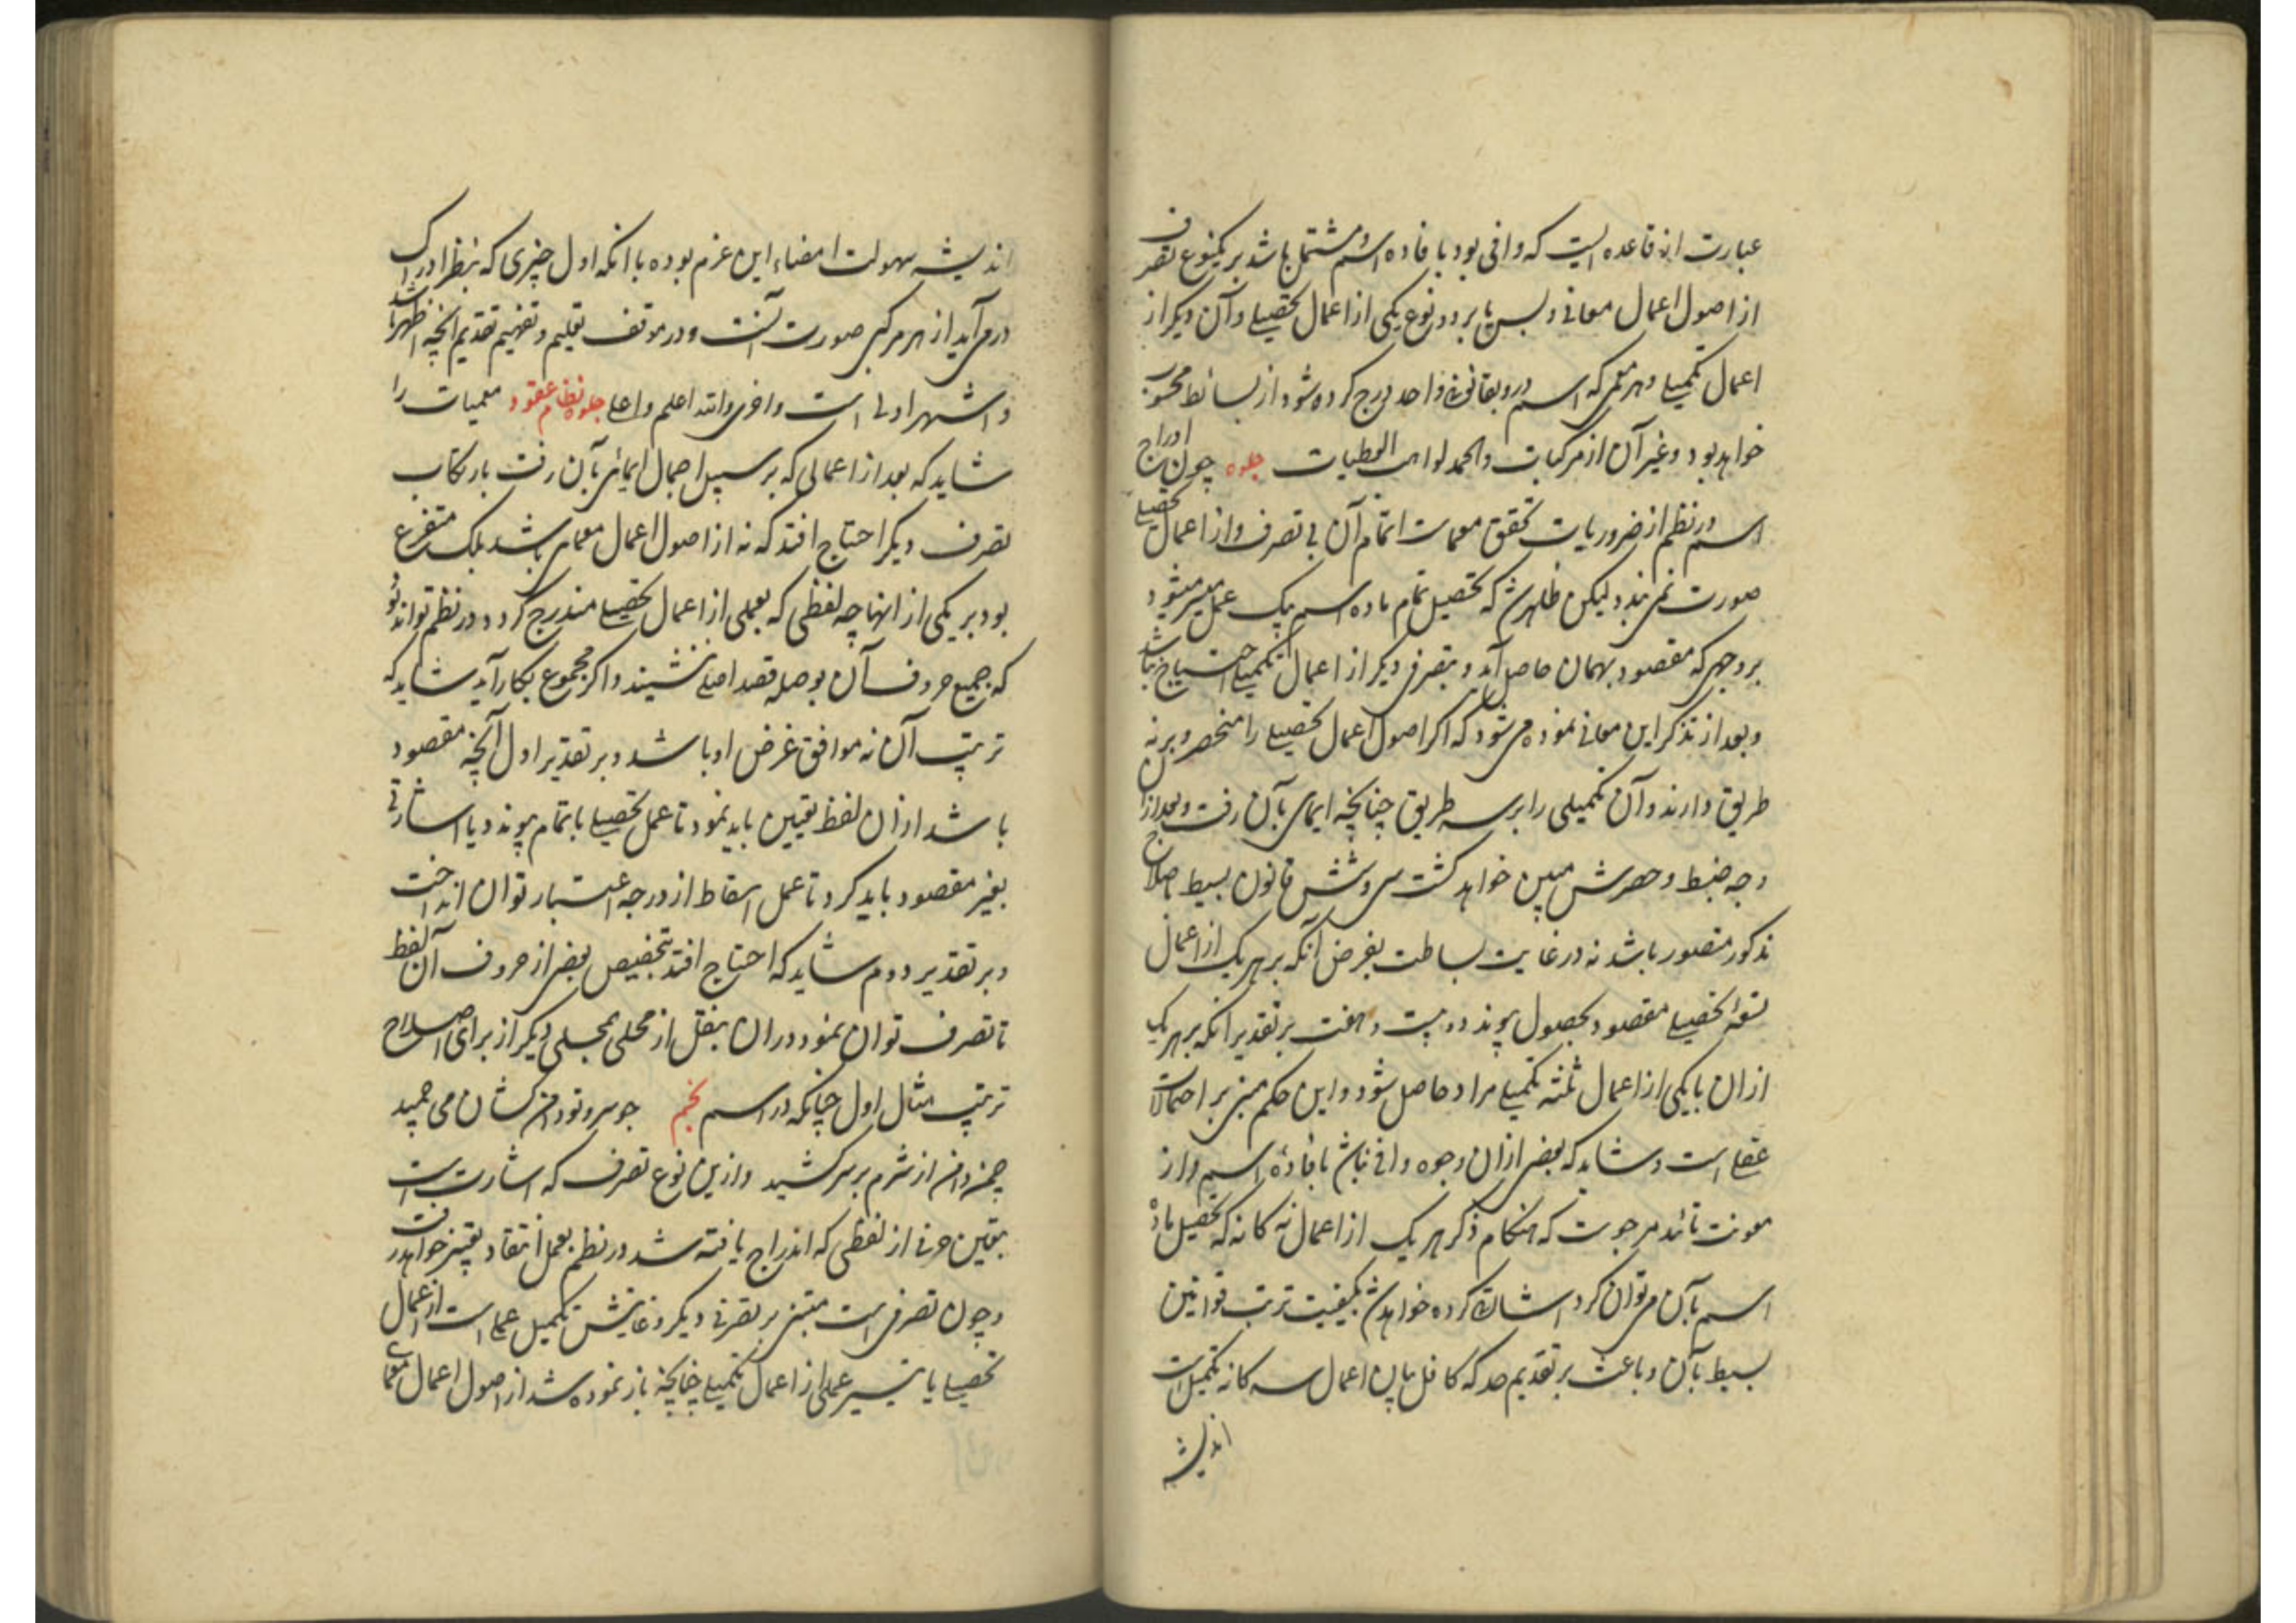 عبارت از قاعده ایست که وافی بود بافاده اسم و مشتمل باشد بر یکنوع تصرف
از اصول اعمال معانی و بس یا بر دو نوع یکی از اعمال تحصیلی و آن دیگر از
اعمال تکمیلی و هر معمی که اسم درو بقانونی واحد درج کرده شود از بسائط محسوب
خواهد بود و غیر آن از مرکبات والحمد لواهب العطیات جلوه چون ادراج
اسم در نظم از ضروریات تحقق معماست اتمام آن بی تصرف و از اعمال تحصیلی
صورت نمی بندد لیکن ظاهرست که تحصیل تمام ماده اسم بیک عمل میسر میشود
بر وجهی که مقصود بهمان حاصل آید و بتصرفی دیگر از اعمال تکمیلی احتیاج نباشد
و بعد از تذکر این معانی نموده می شود که اکر اصول اعمال تحصیلی را منحصر بر نه
طریق دارند و آن تکمیلی را بر سه طریق چنانچه ایمای بآن رفت و بعد ازان
وجه ضبط و حصرش مبین خواهد کشت سی و شش قانون بسیط
مذکور متصور باشد نه در غایت بساطت بفرض آنکه بر هر یک از اعمال
تسعهٔ تحصیلی مقصود بحصول پیوندد و بیست و هفت بر تقدیر انکه بر هر یک
از ان با یکی از اعمال ثلثه تکمیلی مراد حاصل شود و این حکم مبنی بر احتمالات
عقلی است و شاید که بعضی ازان وجوه وافی نباشد بافادهٔ اسم و از
مونت تائید مرجوست که هنکام ذکر هر یک از اعمال نه کانه که تحصیل ماده
اسم بآن می توان کرد اشارت کرده خواهد شد بکیفیت ترتب قوانین
بسیط بآن و باعث بر تقدیم حد که کافل بیان اعمال سه کانه تکمیلیست
اندیشه
اندیشه سهولت امضاء این عزم بوده با انکه اول چیزی که بنظر ادراک
در می آید از هر مرکبی صورت آنست و در موقف تعلیم و تفهیم تقدیم انچه اظهر باشد
و اشهر اولی است و احری والله اعلم واعلی جلوه نظام عقود معمیات را
شاید که بعد از اعمالی که بر سبیل اجمال ایمائی بآن رفت بارتکاب
تصرف دیکر احتیاج افتد که نه از اصول اعمال معمای باشد بلک متفرع
بود بر یکی از انها چه لفظی که بعملی از اعمال تحصیلی مندرج کردد در نظم تواند بود
که جمیع حروف آن بوصله قصد اصلی ننشیند و اکر مجموع بکار آید شاید که
ترتیب آن نه موافق غرض او باشد و بر تقدیر اول آنچه مقصود
باشد ازان لفظ تعیین باید نمود تا عمل تحصیلی باتمام پیوندد یا اشارتی
بغیر مقصود باید کرد تا عمل اسقاط از درجه اعتبار توان انداخت
و بر تقدیر دوم شاید که احتیاج افتد بتخصیص بعضی از حروف آن لفظ
تا تصرف توان نمود دران بنقل از محلی بمحلی دیکر از برای اصلاح
ترتیب مثال اول چنانکه در اسم نجم چو سرو تو دامن کشان می چمید
چمن دامن از شرم بر سر کشید و ازین نوع تصرف که اشارت است
بتعیین حرفی از لفظی که اندراج یافته شد در نظم بعمل انتقاد تعبیر خواهد رفت
و چون تصرفی است مبتنی بر تصرفی دیکر و غایتش تکمیل عملی است از اعمال
تحصیلی یا تیسیر عملی از اعمال تکمیلی چنانچه باز نموده شد از اصول اعمال معما